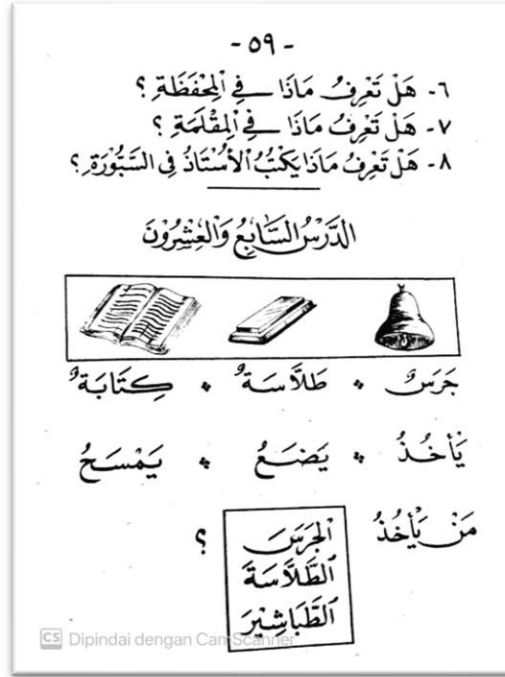 - ٥٩ -
٦- هَلْ تَعْرِفُ مَاذَا فِي الْمِحْفَظَةِ ؟
٧- هَلْ تَعْرِفُ مَاذَا فِي الْمِقْلَمَةِ ؟
٨- هَلْ تَعْرِفُ مَاذَا يَكْتُبُ الْأُسْتَاذُ فِي السَّبُّوْرَةِ ؟
الدَّرْسُ السَّابِعُ وَالْعِشْرُوْنَ
جَرَسٌ * طَلَّاسَةٌ * كِتَابَةٌ
يَأْخُذُ * يَضَعُ * يَمْسَحُ
مَنْ يَأْخُذُ الْجَرَسَ ؟
الطَّلَّاسَةَ
الطَّبَاشِيْرَ
CS Dipindai dengan CamScanner